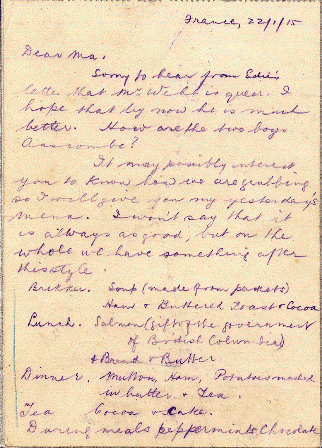 France, 22/1/15
Dear Ma.
Sorry to hear from Edie's
letter that Mr is queer. I
hope that by now he is much
better. How are the two boys
Anscombe?
It may possibly interest
you to know how we are grubbing
so I will give you my yesterday's
menu. I won't say that it
is always as good, but on the
whole we have something after
this style.
Brekker. Soup (made from packets)
Ham & Buttered Toast & Cocoa
Lunch. Salmon (gift of the government
of British Columbia)
& Bread & Butter
Dinner. Mutton, Ham, Potatoes mashed
in butter & Tea.
Tea Cocoa & Cake.
During meals peppermints, Chocolate